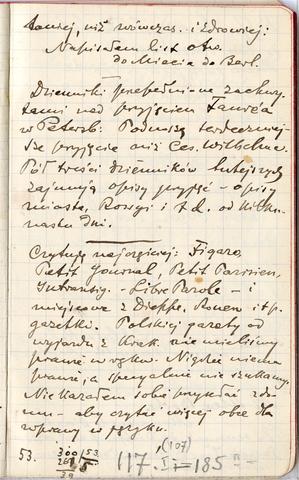 taniej, niż wówczas. i zdrowiej:
Napisałem list otw.
do Miecia do Berl.
Dzienniki przepełnione zachwy-
tami nad przyjęciem Faure'a
w Petersb: Podnoszą serdeczniej-
sze przyjęcie niż Ces. Wilhelma.
Pół treści dzienników tutejszych
zajmują opisy przyjęć - opisy
miasta, Rosyi i t d. od kilku-
nastu dni.
Czytuję najczęściej: Figaro,
Petit Journal, Petit Parisien,
Intransig. - Libre Parole - i
miejscowe z Dieppe, Rouen itp.
gazetki. Polskiej gazety od
wyjazdu z Krak. nie mieliśmy
prawie w ręku. Nigdzie niema
prawie, a specyalnie nie szukamy.
Nie kazałem sobie przysłać z do-
mu - aby czytać więcej obce dla
wprawy w języku.
53. 300 53.
117, (107) I = 185